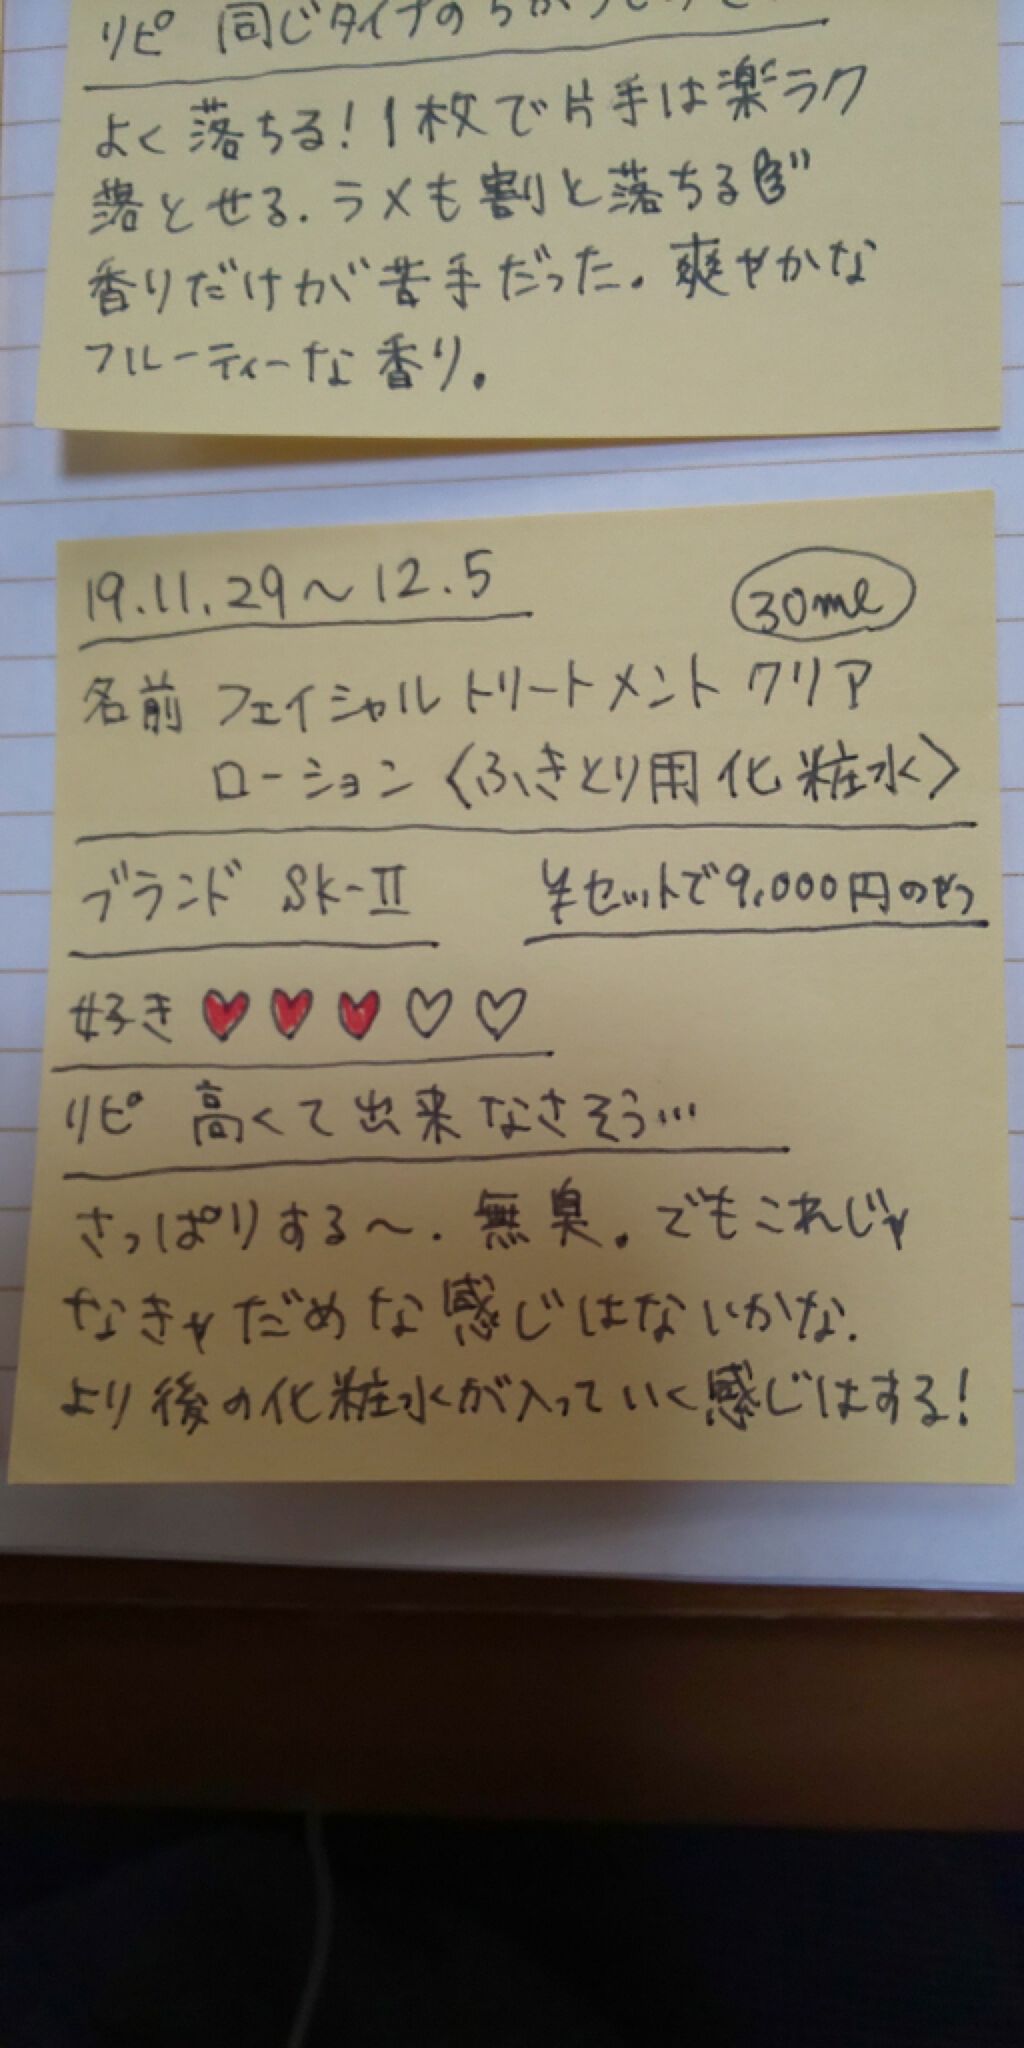 リピ 同じタイプの
よく落ちる！1枚で片手は楽ラク
落とせる．ラメも割と落ちる
香りだけが苦手だった．爽やかな
フルーティーな香り．
19.11.29～12.5
30ml
名前 フェイシャルトリートメント クリア
ローション〈ふきとり用化粧水〉
ブランド SK-II
¥セットで9,000円のやつ
好き ♥♥♥♡♡
リピ 高くて出来なさそう…
さっぱりする～．無臭．でもこれじゃ
なきゃだめな感じはないかな．
より後の化粧水が入っていく感じはする！